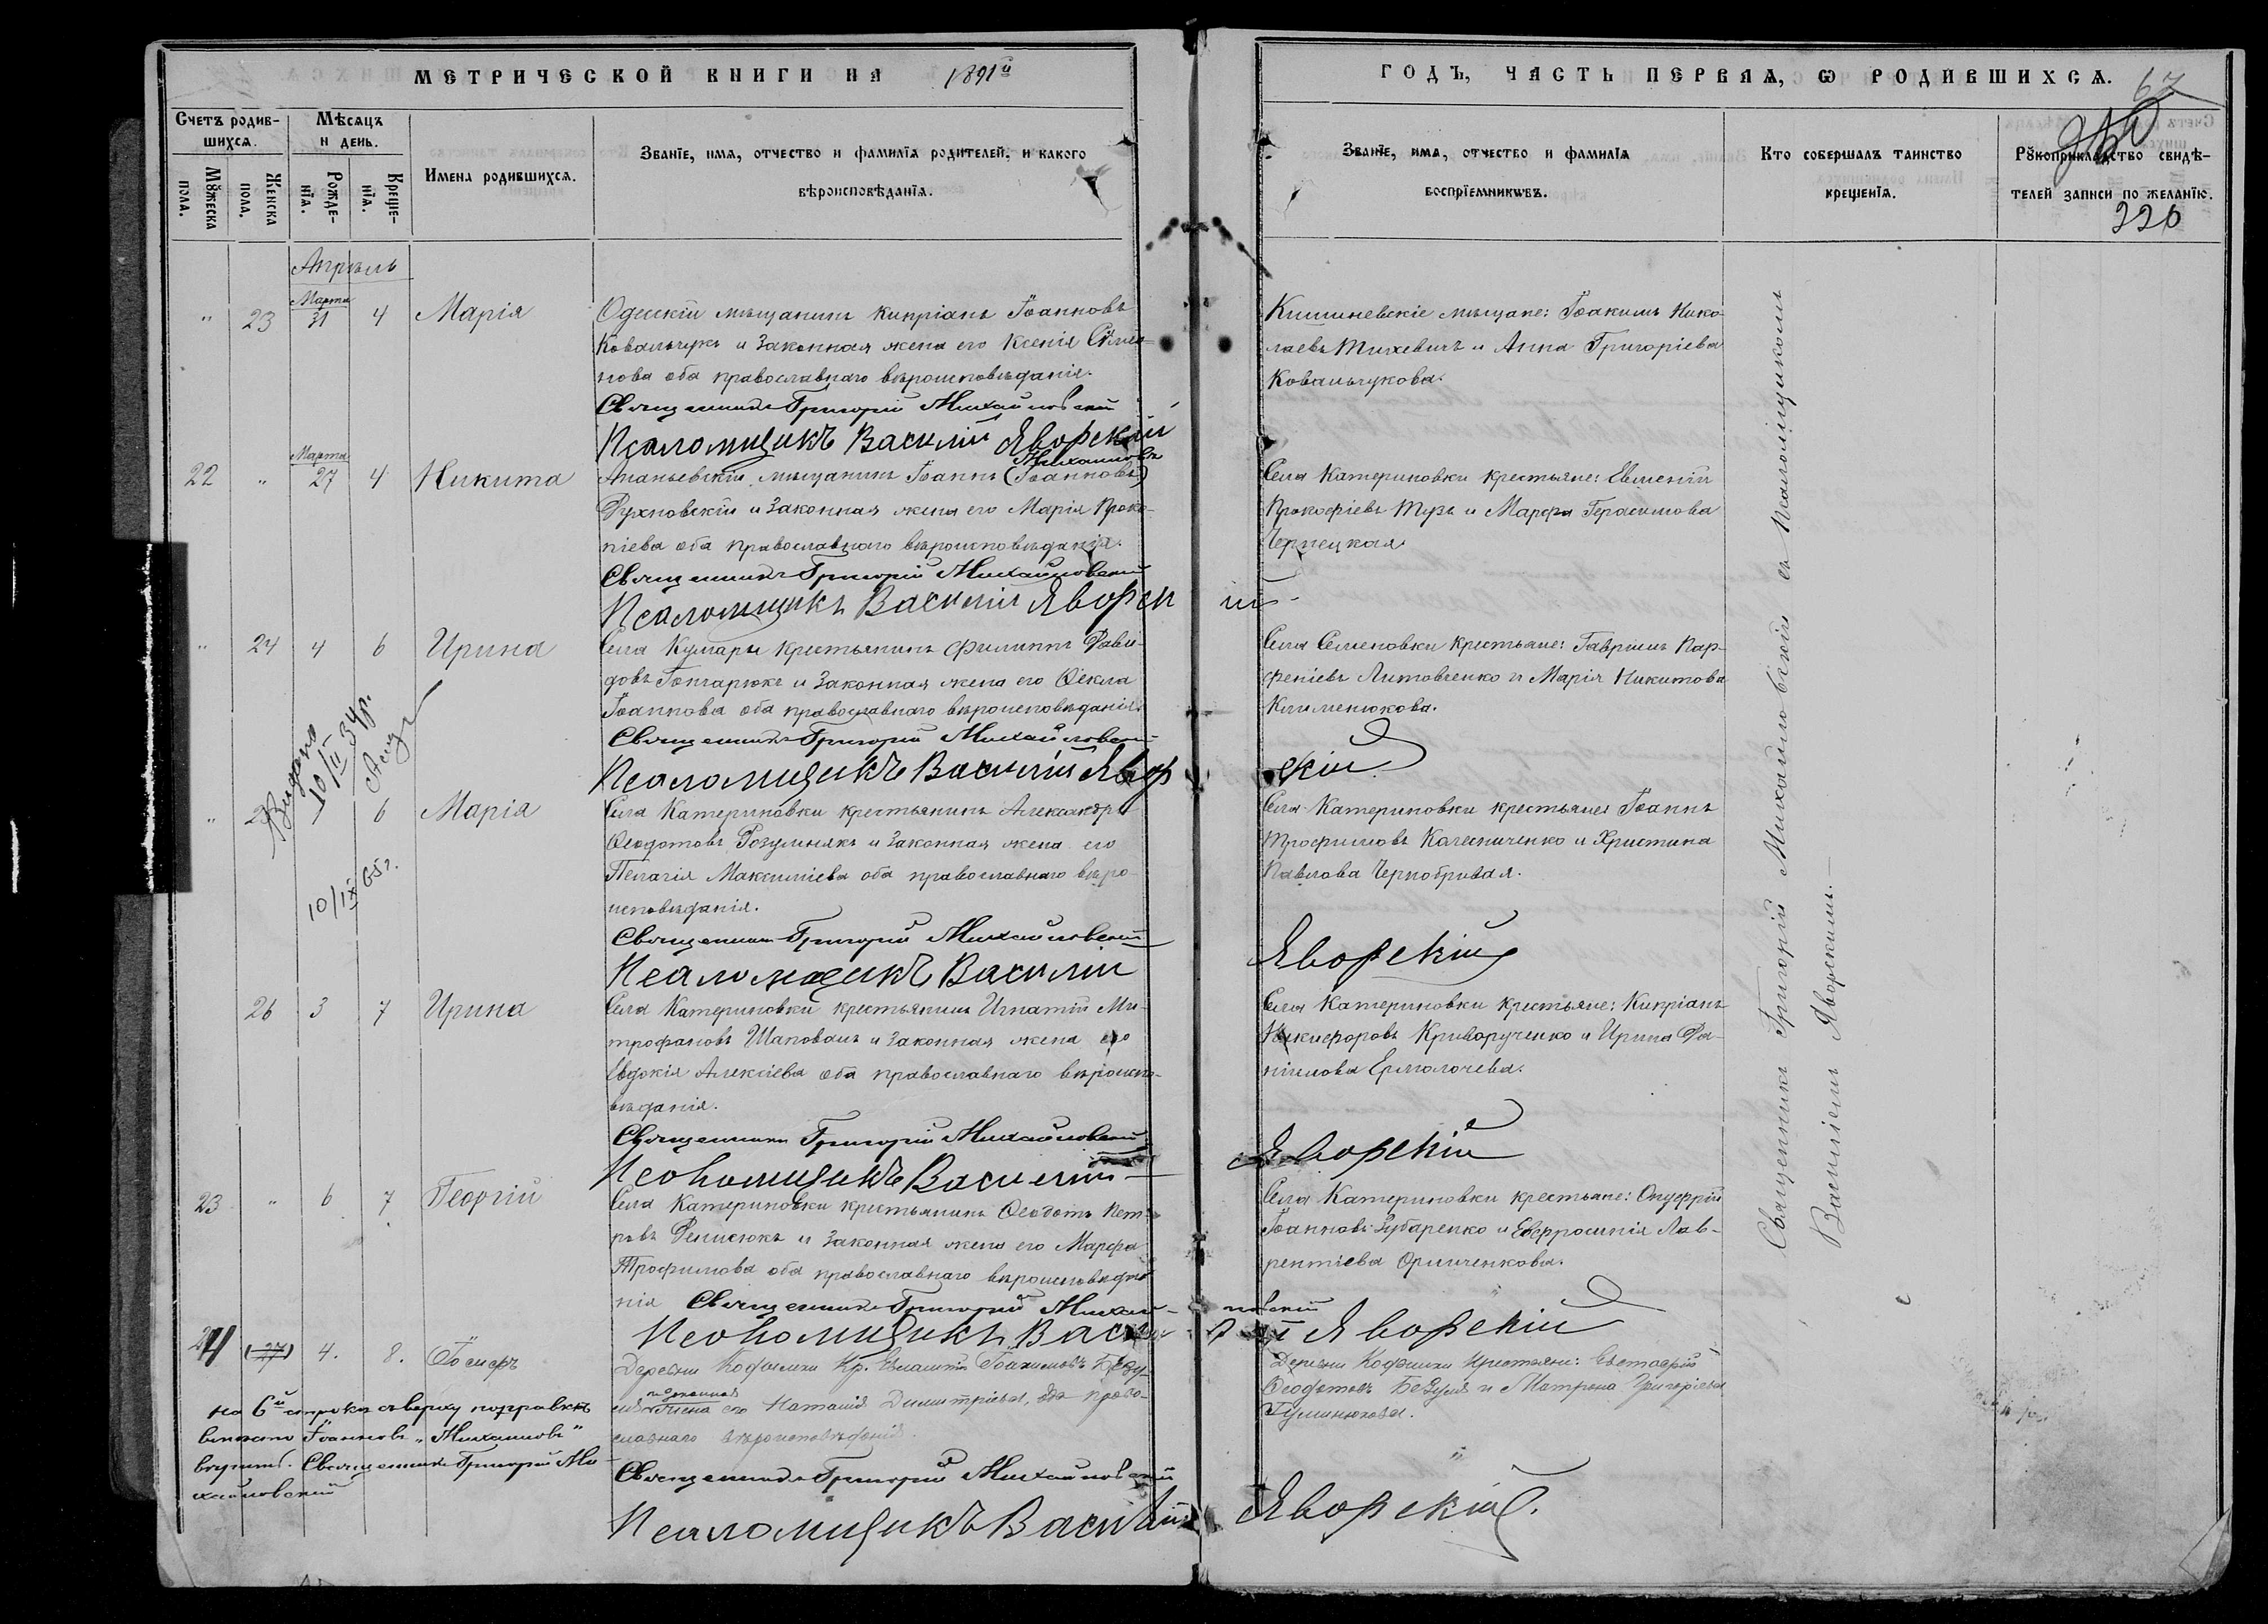 МЕТРИЧЕСКОЙ КНИГИ НА 1891й
ГОДЪ, ЧАСТЬ ПЕРВАЯ, Ѡ РОДИВШИХСѦ. 67
Счетъ родив-
шихсѧ.
Мѣсяцъ
и день.
Мꙋжеска
пола.
Женска
пола.
Рожде-
нїѧ.
Креще-
нїѧ.
Имена родившихсѧ.
Званїе, имѧ, отчество и фамилїѧ родителей, и какого
вѣроисповѣданїѧ.
Званїе, имѧ, отчество и фамилїѧ
воспрїемникѡвъ.
Кто совершалъ таинство
крещенїѧ.
Рꙋкоприкладство свидѣ-
телей записи по желанїю.
226
Апрѣль
" 23 Марта 31 4 Марія
Одесскій мѣщанинъ Кипріанъ Іоанновъ
Ковальчукъ и законная жена его Ксенія Симео-
нова оба православнаго вѣроисповѣданія.
Священникъ Григорій Михайловскій
Псаломщикъ Василій Яворскій
Кишиневскіе мѣщане: Іоакимъ Нико-
лаевъ Тихевичъ и Анна Григоріева
Ковальчукова.
22 " Марта 27 4 Никита
Михаиловъ
Ананьевскій мѣщанинъ Іоаннъ (Іоанновъ)
Духновскій и законная жена его Марія Проко-
піева оба православнаго вѣроисповѣданія.
Священникъ Григорій Михайловскій
Псаломщикъ Василій Яворскій
Села Катериновки крестьяне: Евменій
Прокофіевъ Тузъ и Марфа Герасимова
Чернецкая
" 24 4 6 Ирина
Села Кумары крестьянинъ Филиппъ Дави-
довъ Гончарюкъ и законная жена его Ѳекла
Іоаннова оба православнаго вѣроисповѣданія.
Священникъ Григорій Михайловскій
Псаломщикъ Василій Яворскій
Села Семеновки крестьяне: Гавріилъ Пар-
феніевъ Литовченко и Марія Никитова
Клименюкова.
Видано
10/II 34 р.
" 25 1 6 Марія
10/IX 65 г.
Села Катериновки крестьянинъ Александръ
Ѳеодотовъ Розумнякъ и законная жена его
Пелагія Максиміева оба православнаго вѣро-
исповѣданія.
Священникъ Григорій Михайловскій
Псаломщикъ Василій Яворскій
Села Катериновки крестьяне: Іоаннъ
Трофимовъ Калесниченко и Христина
Павлова Чернобривая.
26 3 7 Ирина
Села Катериновки крестьянинъ Игнатій Ми-
трофановъ Шаповалъ и законная жена его
Евдокія Алексіева оба православнаго вѣроиспо-
вѣданія.
Священникъ Григорій Михайловскій
Псаломщикъ Василій Яворскій
Села Катериновки крестьяне: Кипріанъ
Никифоровъ Криворученко и Ирина Да-
ніилова Ермолочева.
23 " 6 7 Георгій
Села Катериновки крестьянинъ Ѳеодотъ Пет-
ровъ Денисюкъ и законная жена его Марфа
Трофимова оба православнаго вѣроисповѣда-
нія Священникъ Григорій Михайловскій
Псаломщикъ Василій Яворскій
Села Катериновки крестьяне: Онуфрій
Іоанновъ Зубаренко и Евфросинія Лав-
рентіева Оришченкова.
24 (27) 4. 8. Іосифъ
Деревни Кр. Іоакимовъ Безу-
законная
жена его Наталія Димитріева, оба право-
славнаго вѣроисповѣданія.
Священникъ Григорій Михайловскій
Псаломщикъ Василій Яворскій.
Деревни крестьяне: Евстафій
Ѳеодотовъ и Матрона Григоріева
Гуминюкова.
на 6й строкѣ сверху поправкѣ
вмѣсто Іоанновъ „Михаиловъ"
Священникъ Григорій Ми-
хайловскій
Священникъ Григорій Михайловскій съ Псаломщикомъ
Василіемъ Яворскимъ.—